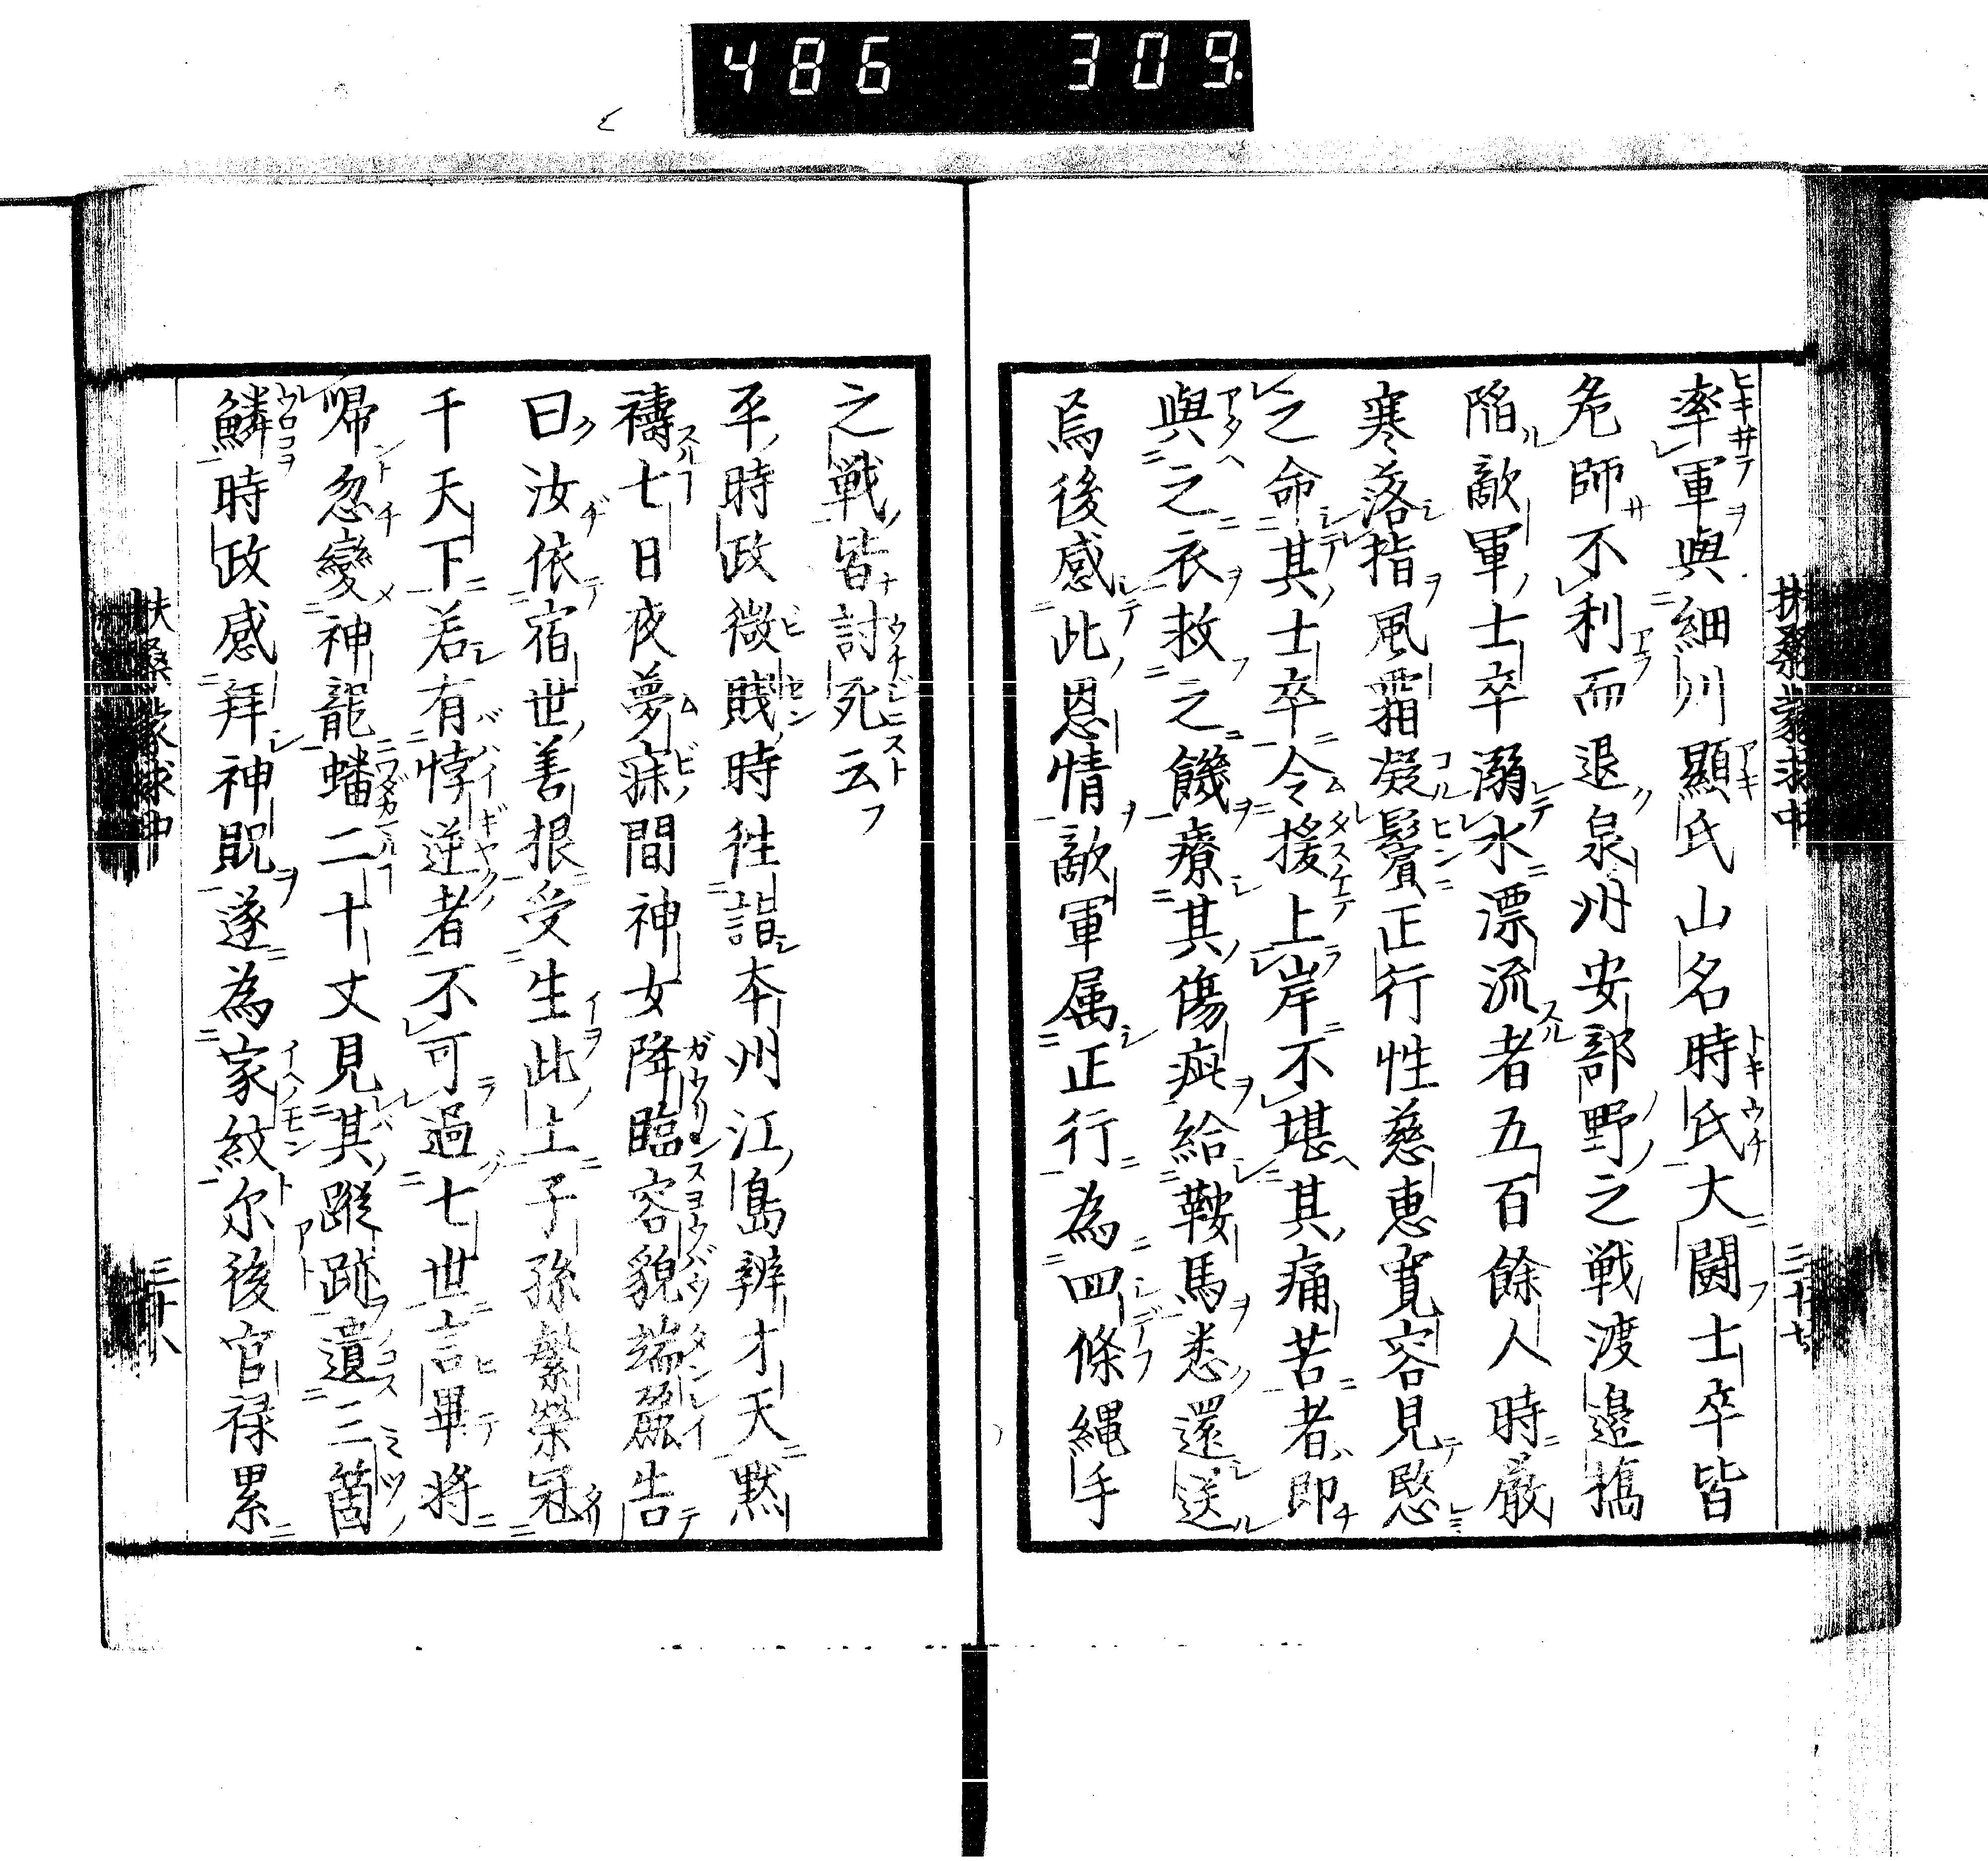 486 309
扶桑蒙求中 三十七
率軍與細川顯氏山名時氏大闘士卒皆
危師不利而退泉州安部野之戦渡邉橋
陥敵軍士卒溺水漂流者五百餘人時嚴
寒落指風霜凝鬢正行性慈惠寛容見愍
之命其士卒令援上岸不堪其痛苦者即
與之衣救之饑療其傷疵給鞍馬悉還送
焉後感此恩情敵軍属正行為四條縄手
之戦皆討死云
平時政微賤時徃詣本州江島辨才天黙
禱七日夜夢寐間神女降臨容貌端麗告
曰汝依宿世善根受生此土子孫繁榮冠
千天下若有悖逆者不可過七世言畢将
帰忽變神龍蟠二十丈見其蹤跡遺三箇
鱗時政感拜神貺遂為家紋尔後官禄累
扶桑蒙求中 三十八